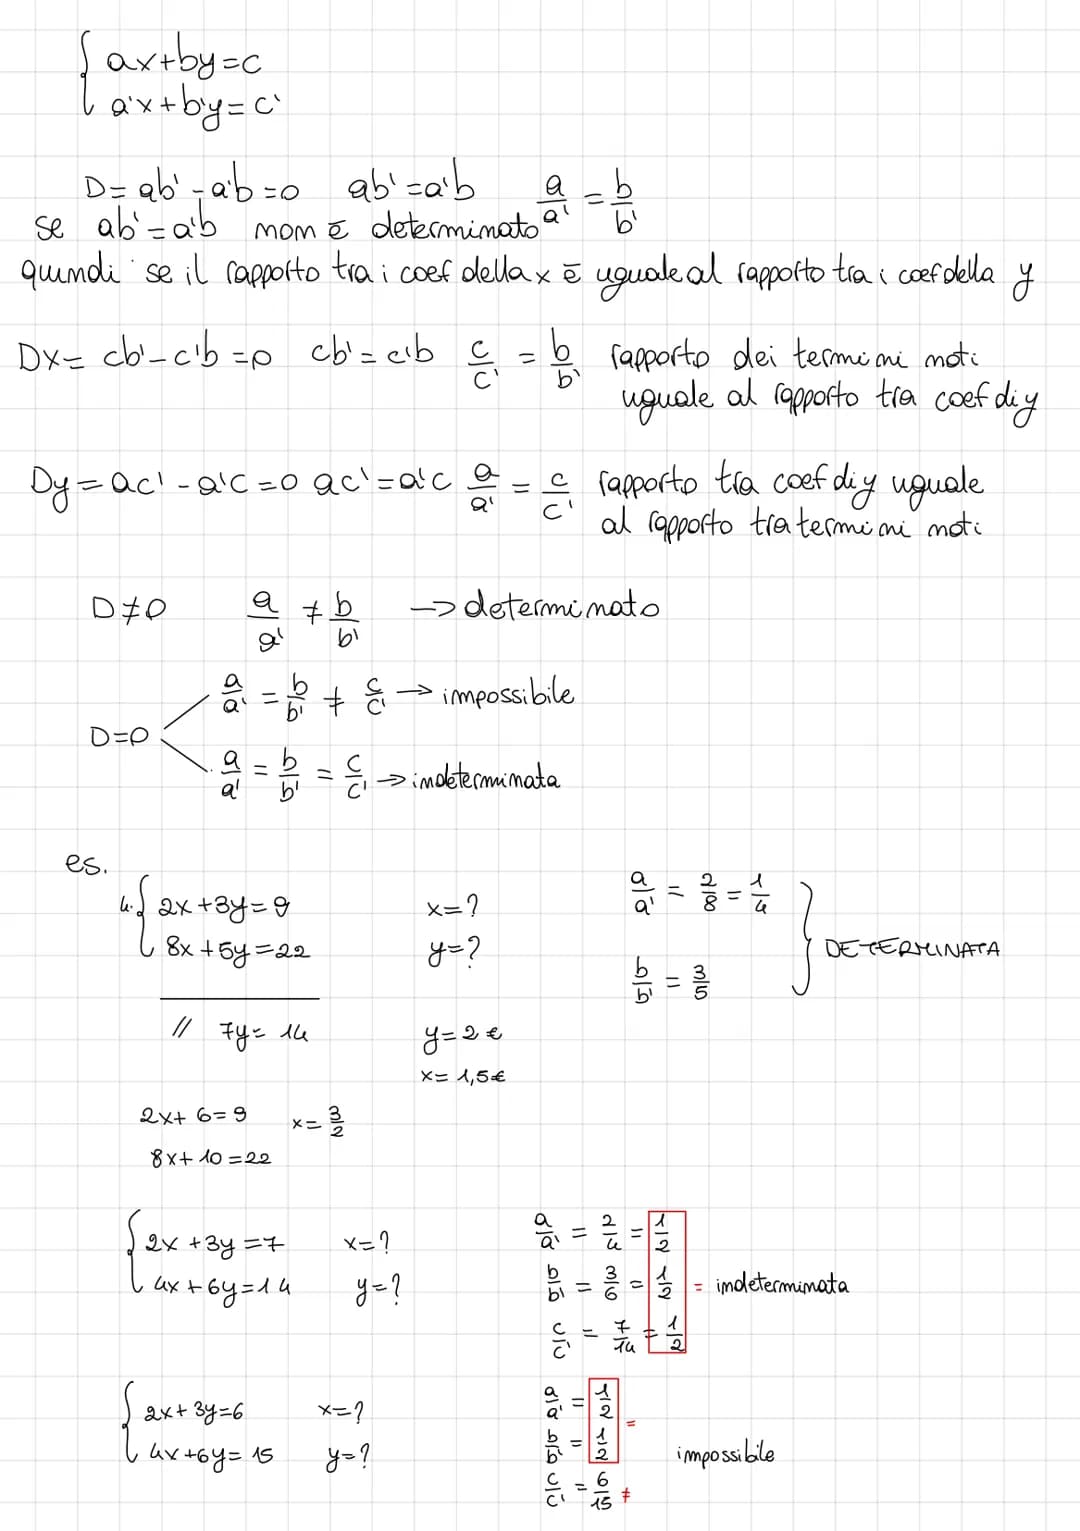 { ax+by=c
a'x+b'y=c'
D= ab'-a'b=0 ab'=a'b a/a' = b/b'
se ab'=a'b non è determinato
quindi se il rapporto tra i coef della x è uguale al rapporto tra i coef della y
Dx= cb'-c'b=0 cb'=c'b c/c' = b/b' rapporto dei termini noti
uguale al rapporto tra coef di y
Dy= ac'-a'c=0 ac'=a'c a/a' = c/c' rapporto tra coef di y uguale
al rapporto tra termini noti
D≠0 a/a' ≠ b/b' → determinato
a/a' = b/b' ≠ c/c' → impossibile
D=0
a/a' = b/b' = c/c' → indeterminata
es.
4. { 2x+3y=9 x=? a/a' = 2/8 = 1/4
8x+5y=22 y=? } DETERMINATA
b/b' = 3/5
// 7y= 14 y=2€
x= 1,5€
2x+ 6=9 x= 3/2
8x+ 10=22
{ 2x+3y=7 x=? a/a' = 2/4 = 1/2
4x+6y=14 y=? b/b' = 3/6 = 1/2 = indeterminata
c/c' = 7/14 = 1/2
{ 2x+3y=6 x=? a/a' = 1/2 =
4x+6y= 15 y=? b/b' = 1/2 impossibile
c/c' = 6/15 ≠